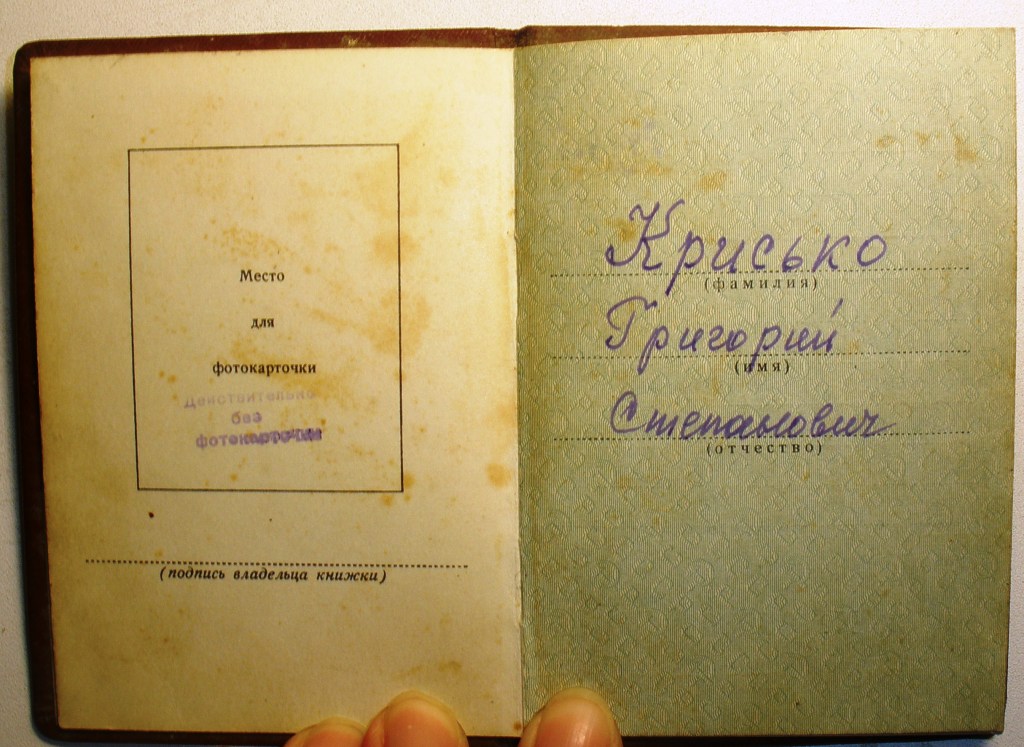 Место
для
фотокарточки
Действительно
без
фотокарточки
(подпись владельца книжки)
Крисько
(фамилия)
Григорий
(имя)
Степанович
(отчество)